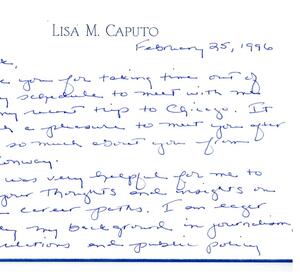 LISA M. CAPUTO
February 25, 1996
you for taking time out of
schedule to meet with me
my recent trip to Chicago. It
a pleasure to meet you after
so much about you from
Conway.
was very helpful for me to
your thoughts and insights on
career paths. I am eager
my background in journalism,
and public policy